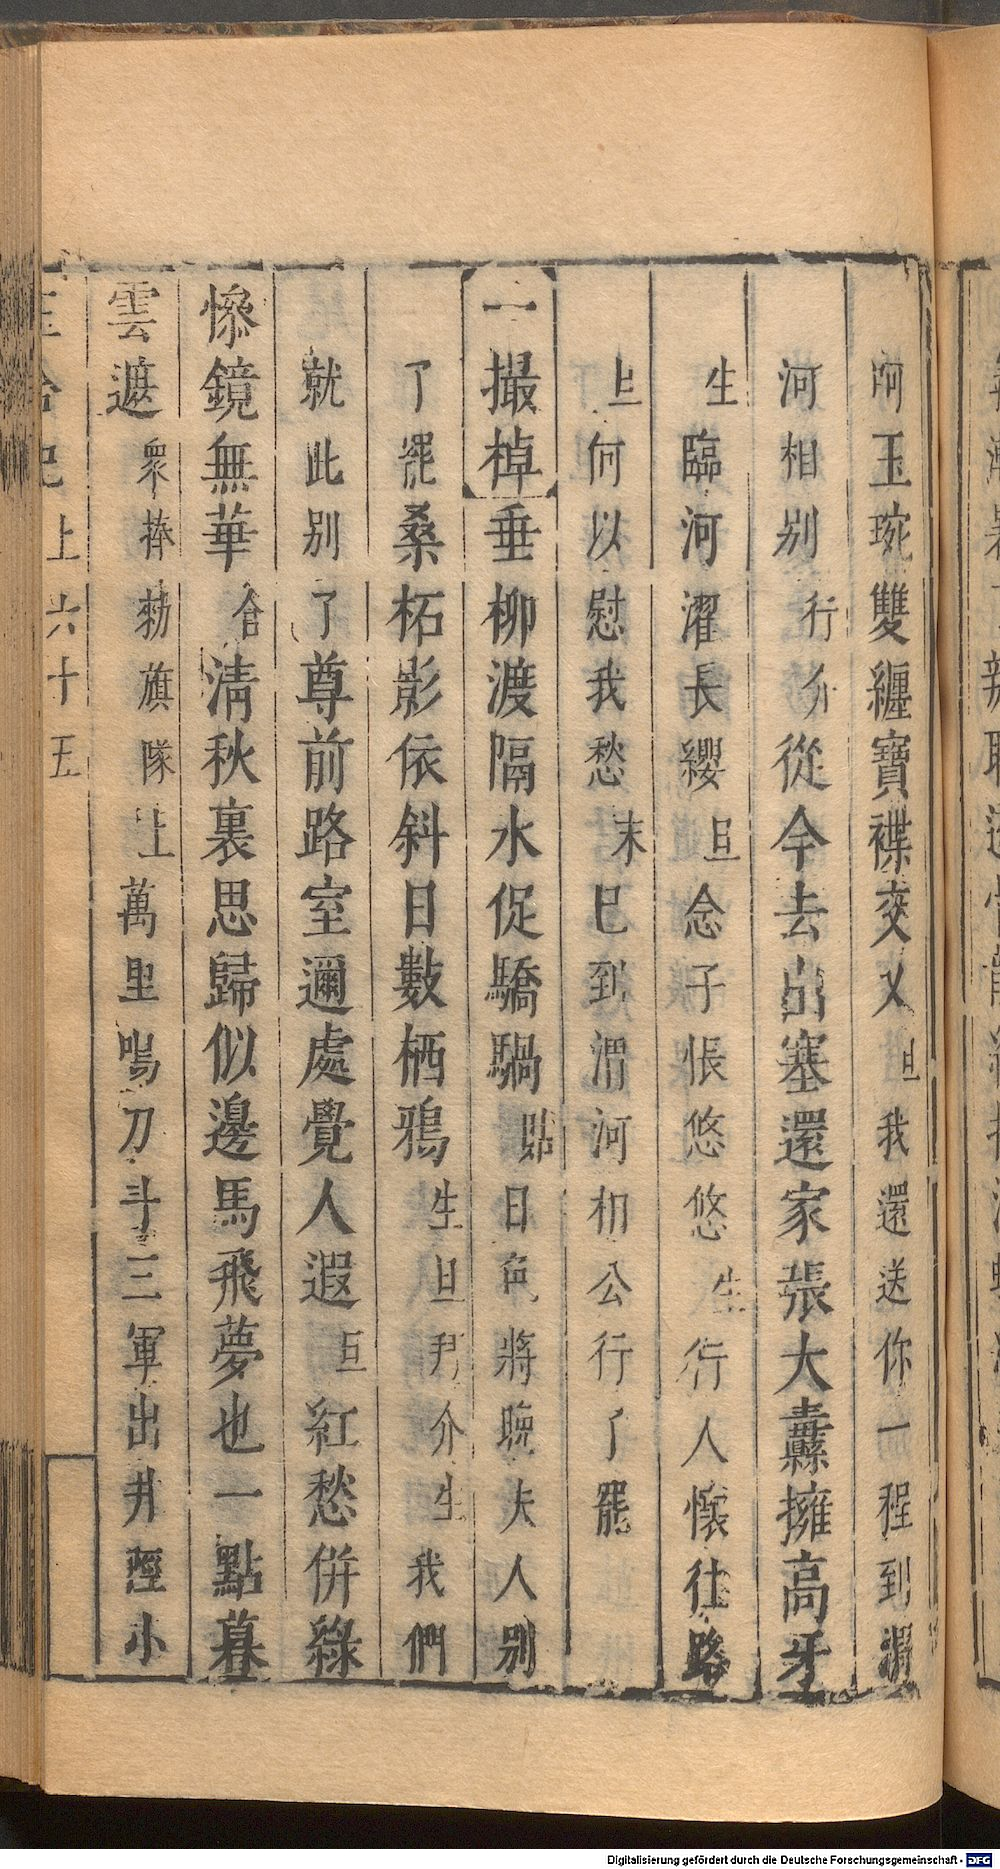 呵玉琬雙纏寶襟交乂旦我還送你一程到渭
河相別行介從今去出塞還家張大纛擁高牙
生臨河濯長纓旦念子悵悠悠生行人懷徃路
旦何以慰我愁末巳到渭河相公行了罷
一撮棹垂柳渡隔水促驕騧貼日色將晚夫人別
了罷桑柘影依斜日數栖鴉生旦介生我們
就此別了尊前路室邇處覺人遐旦紅愁併綠
慘鏡無華合清秋裏思歸似邊馬飛夢也一點暮
雲遮衆捧勑旗隊上萬里鳴刀斗三軍出井陘小
上六十五
Digitalisierung gefördert durch die Deutsche Forschungsgemeinschaft - DFG